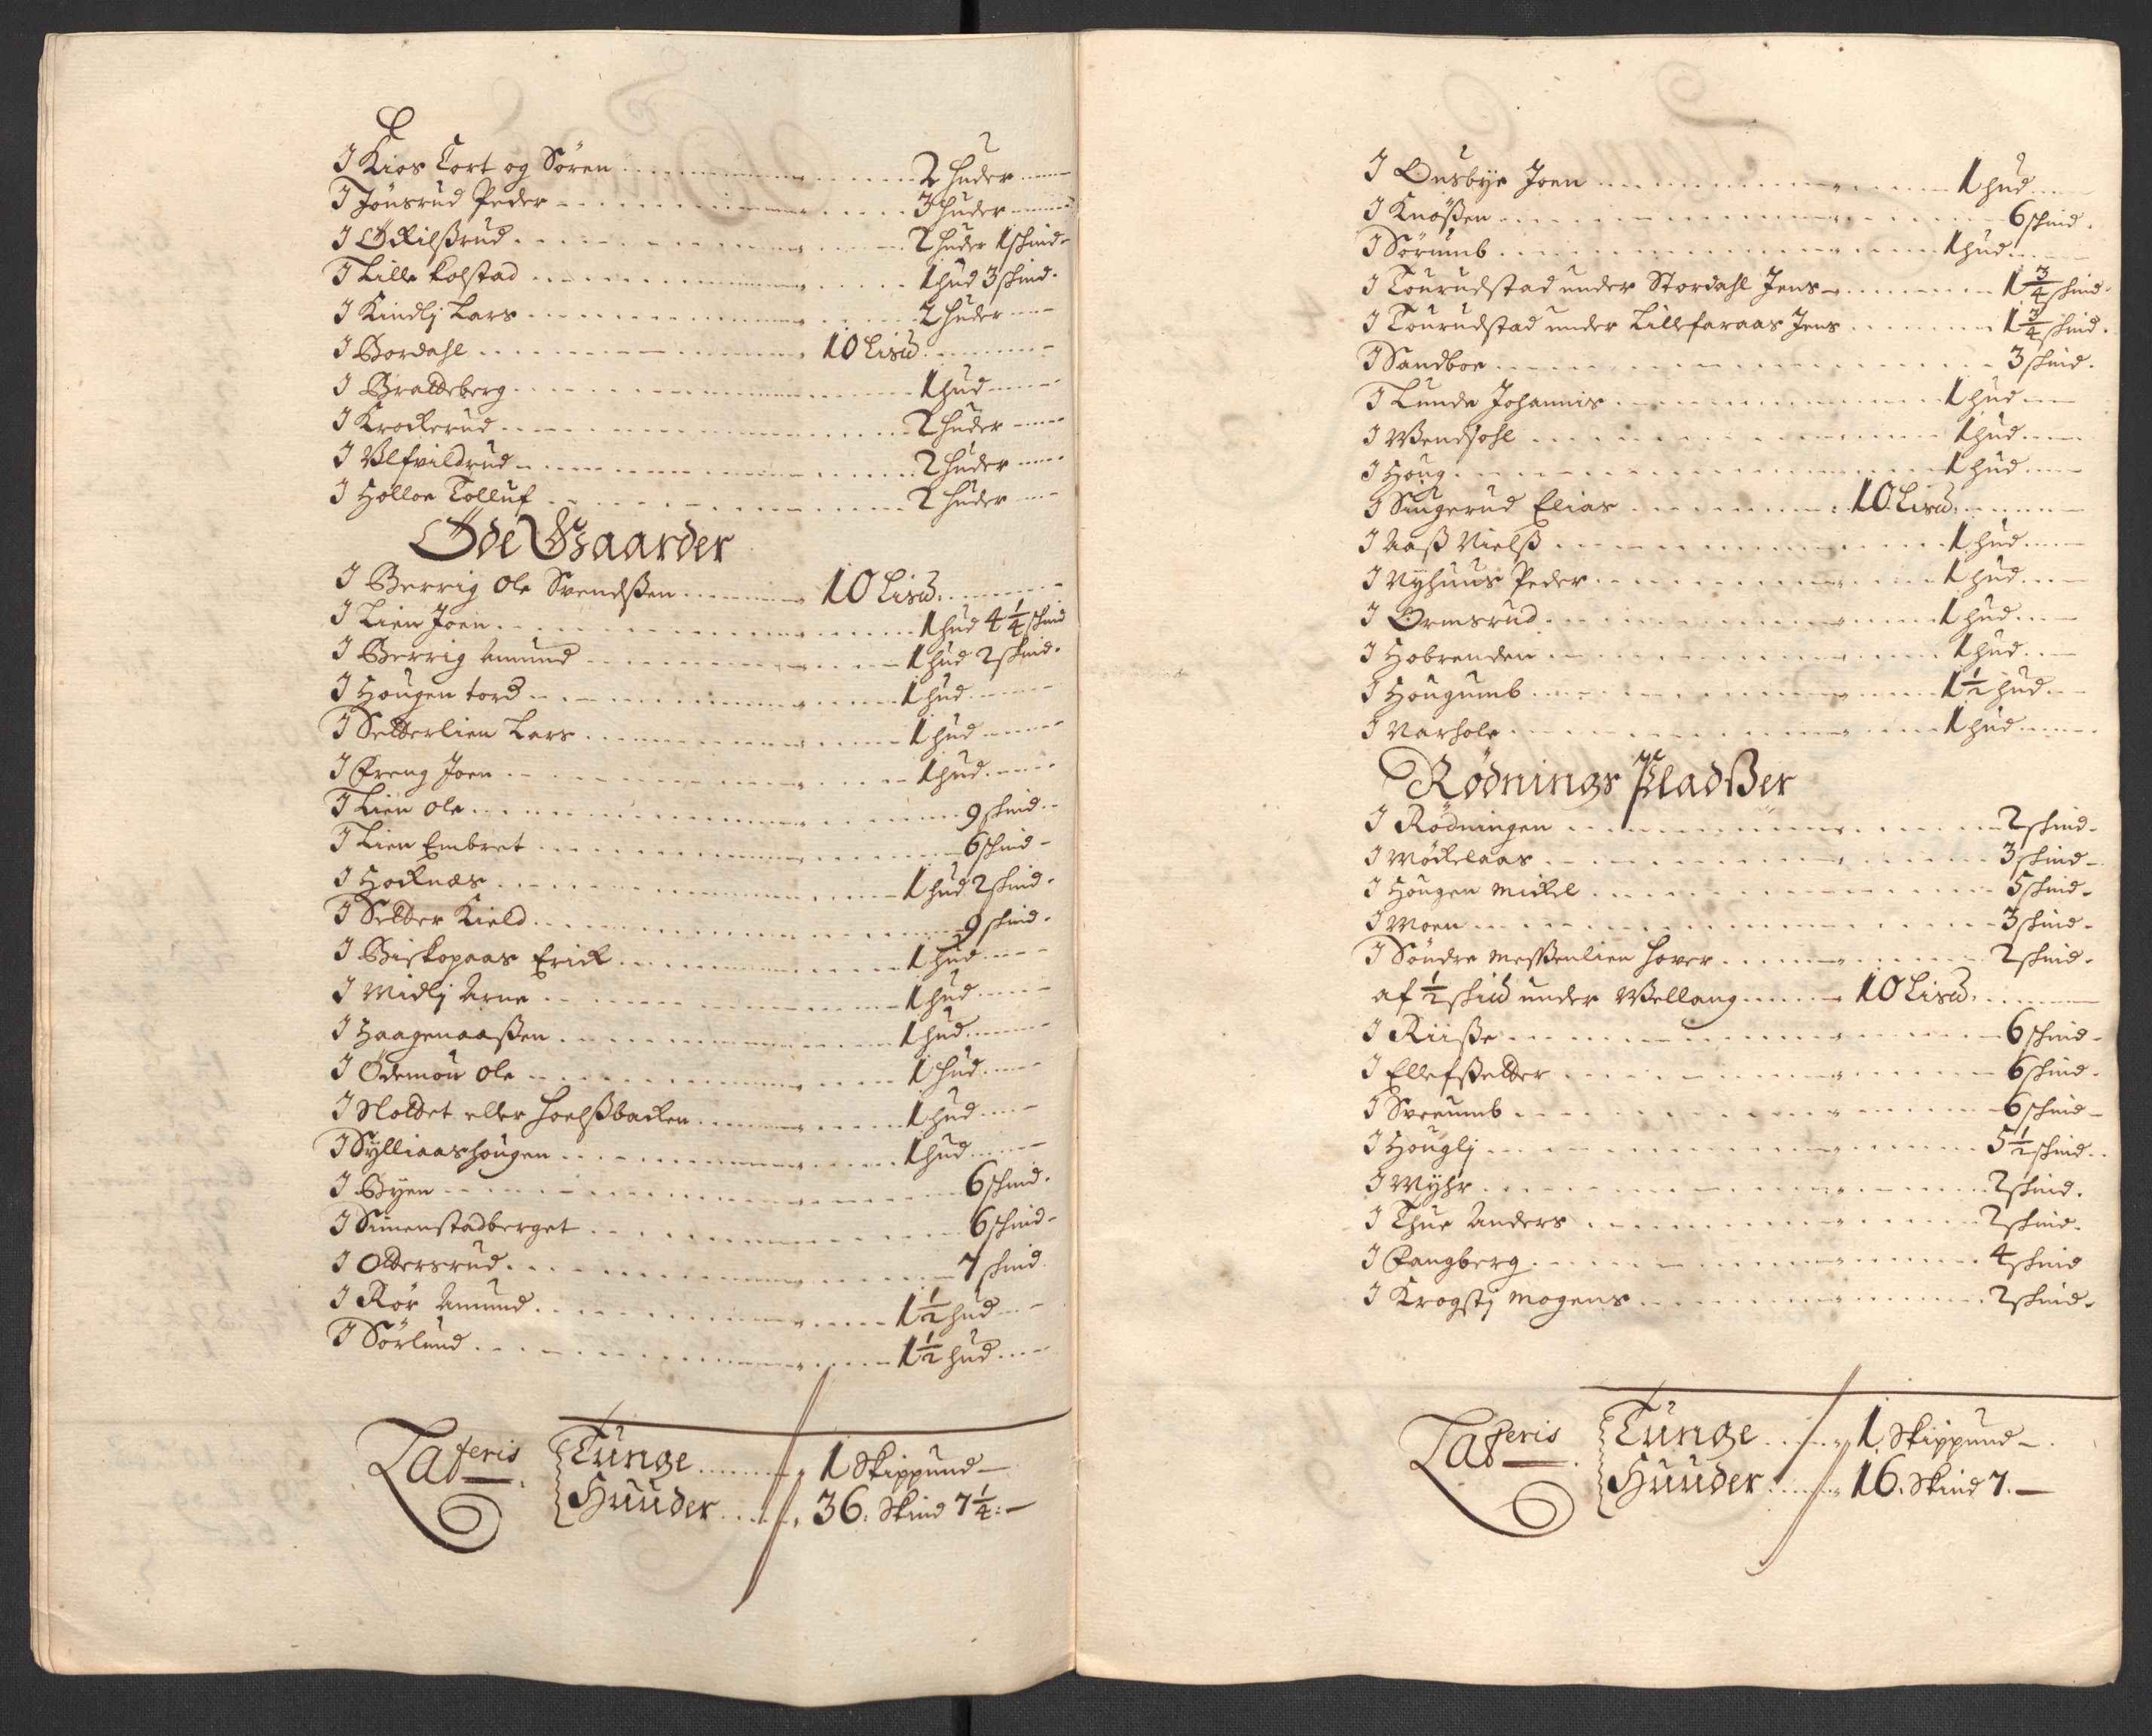 I Kios Tort og Sören ........ 2 huder
I Jönsrud Peder ........ 3 huder
I Økilßrud ........ 2 huder 1 skind
I Lille Kolstad ........ 1 hud 3 skind
I Kindlj Lars ........ 2 huder
I Bordahl ........ 10 Lis℔
I Bratteberg ........ 1 hud
I Krockerud ........ 2 huder
I Ulfvildrud ........ 2 huder
I Holloe Tolluf ........ 2 huder
Øde Gaarder
I Berrig Ole Svendßen ........ 10 Lis℔
I Lien Joen ........ 1 hud 4 1/4 skind
I Berrig Amund ........ 1 hud 2 skind
I Hougen tord ........ 1 hud
I Setterlien Lars ........ 1 hud
I Freng Joen ........ 1 hud
I Lien Ole ........ 9 skind
I Lien Embret ........ 6 skind
I Hocknæs ........ 1 hud 2 skind
I Setter Kield ........ 9 skind
I Biskopaas Erick ........ 1 hud
I Midlj Arne ........ 1 hud
I Haagenaaßen ........ 1 hud
I Ödemou Ole ........ 1 hud
I Slottet eller Hoelßbacken ........ 1 hud
I Sylliaashougen ........ 1 hud
I Byen ........ 6 skind
I Simenstadberget ........ 6 skind
I Ottersrud ........ 7 skind
I Rör Amund ........ 1 1/2 hud
I Sörlund ........ 1 1/2 hud
Lateris Tunge ........ 1 Skippund
Huuder ........ 36. Skind 7 1/4
I Ousbye Joen ........ 1 hud
I Knößen ........ 6 skind
I Sörumb ........ 1 hud
I Tourudstad under Stordahl Jens ........ 1 3/4 skind
I Tourudstad under Lillefaraas Jens ........ 1 3/4 skind
I Sandboe ........ 3 skind
I Lunde Johannis ........ 1 hud
I Wendsohl ........ 1 hud
I Houg ........ 1 hud
I Singerud Elias ........ 10 Lis℔
I Aaß Nielß ........ 1 hud
I Nyhuus Peder ........ 1 hud
I Ormsrud ........ 1 hud
I Hobrenden ........ 1 hud
I Hougumb ........ 1 1/2 hud
I Narhole ........ 1 hud
Rödnings Pladßer
I Rödningen ........ 2 skind
I Möckelaas ........ 3 skind
I Hougen Mickel ........ 5 skind
I Moen ........ 3 skind
I Söndre Meßenlien Hover ........ 2 skind
af 1/2 ski℔ under Wellang ........ 10 Lis℔
I Riiße ........ 6 skind
I Ellefßetter ........ 6 skind
I Sveeumb ........ 6 skind
I Houglj ........ 5 1/2 skind
I Myhr ........ 2 skind
I Thue Anders ........ 2 skind
I Fangberg ........ 4 skind
I Krogstj Mogens ........ 2 skind
Lateris Tunge ........ 1 Skippund
Huuder ........ 16. Skind 7.